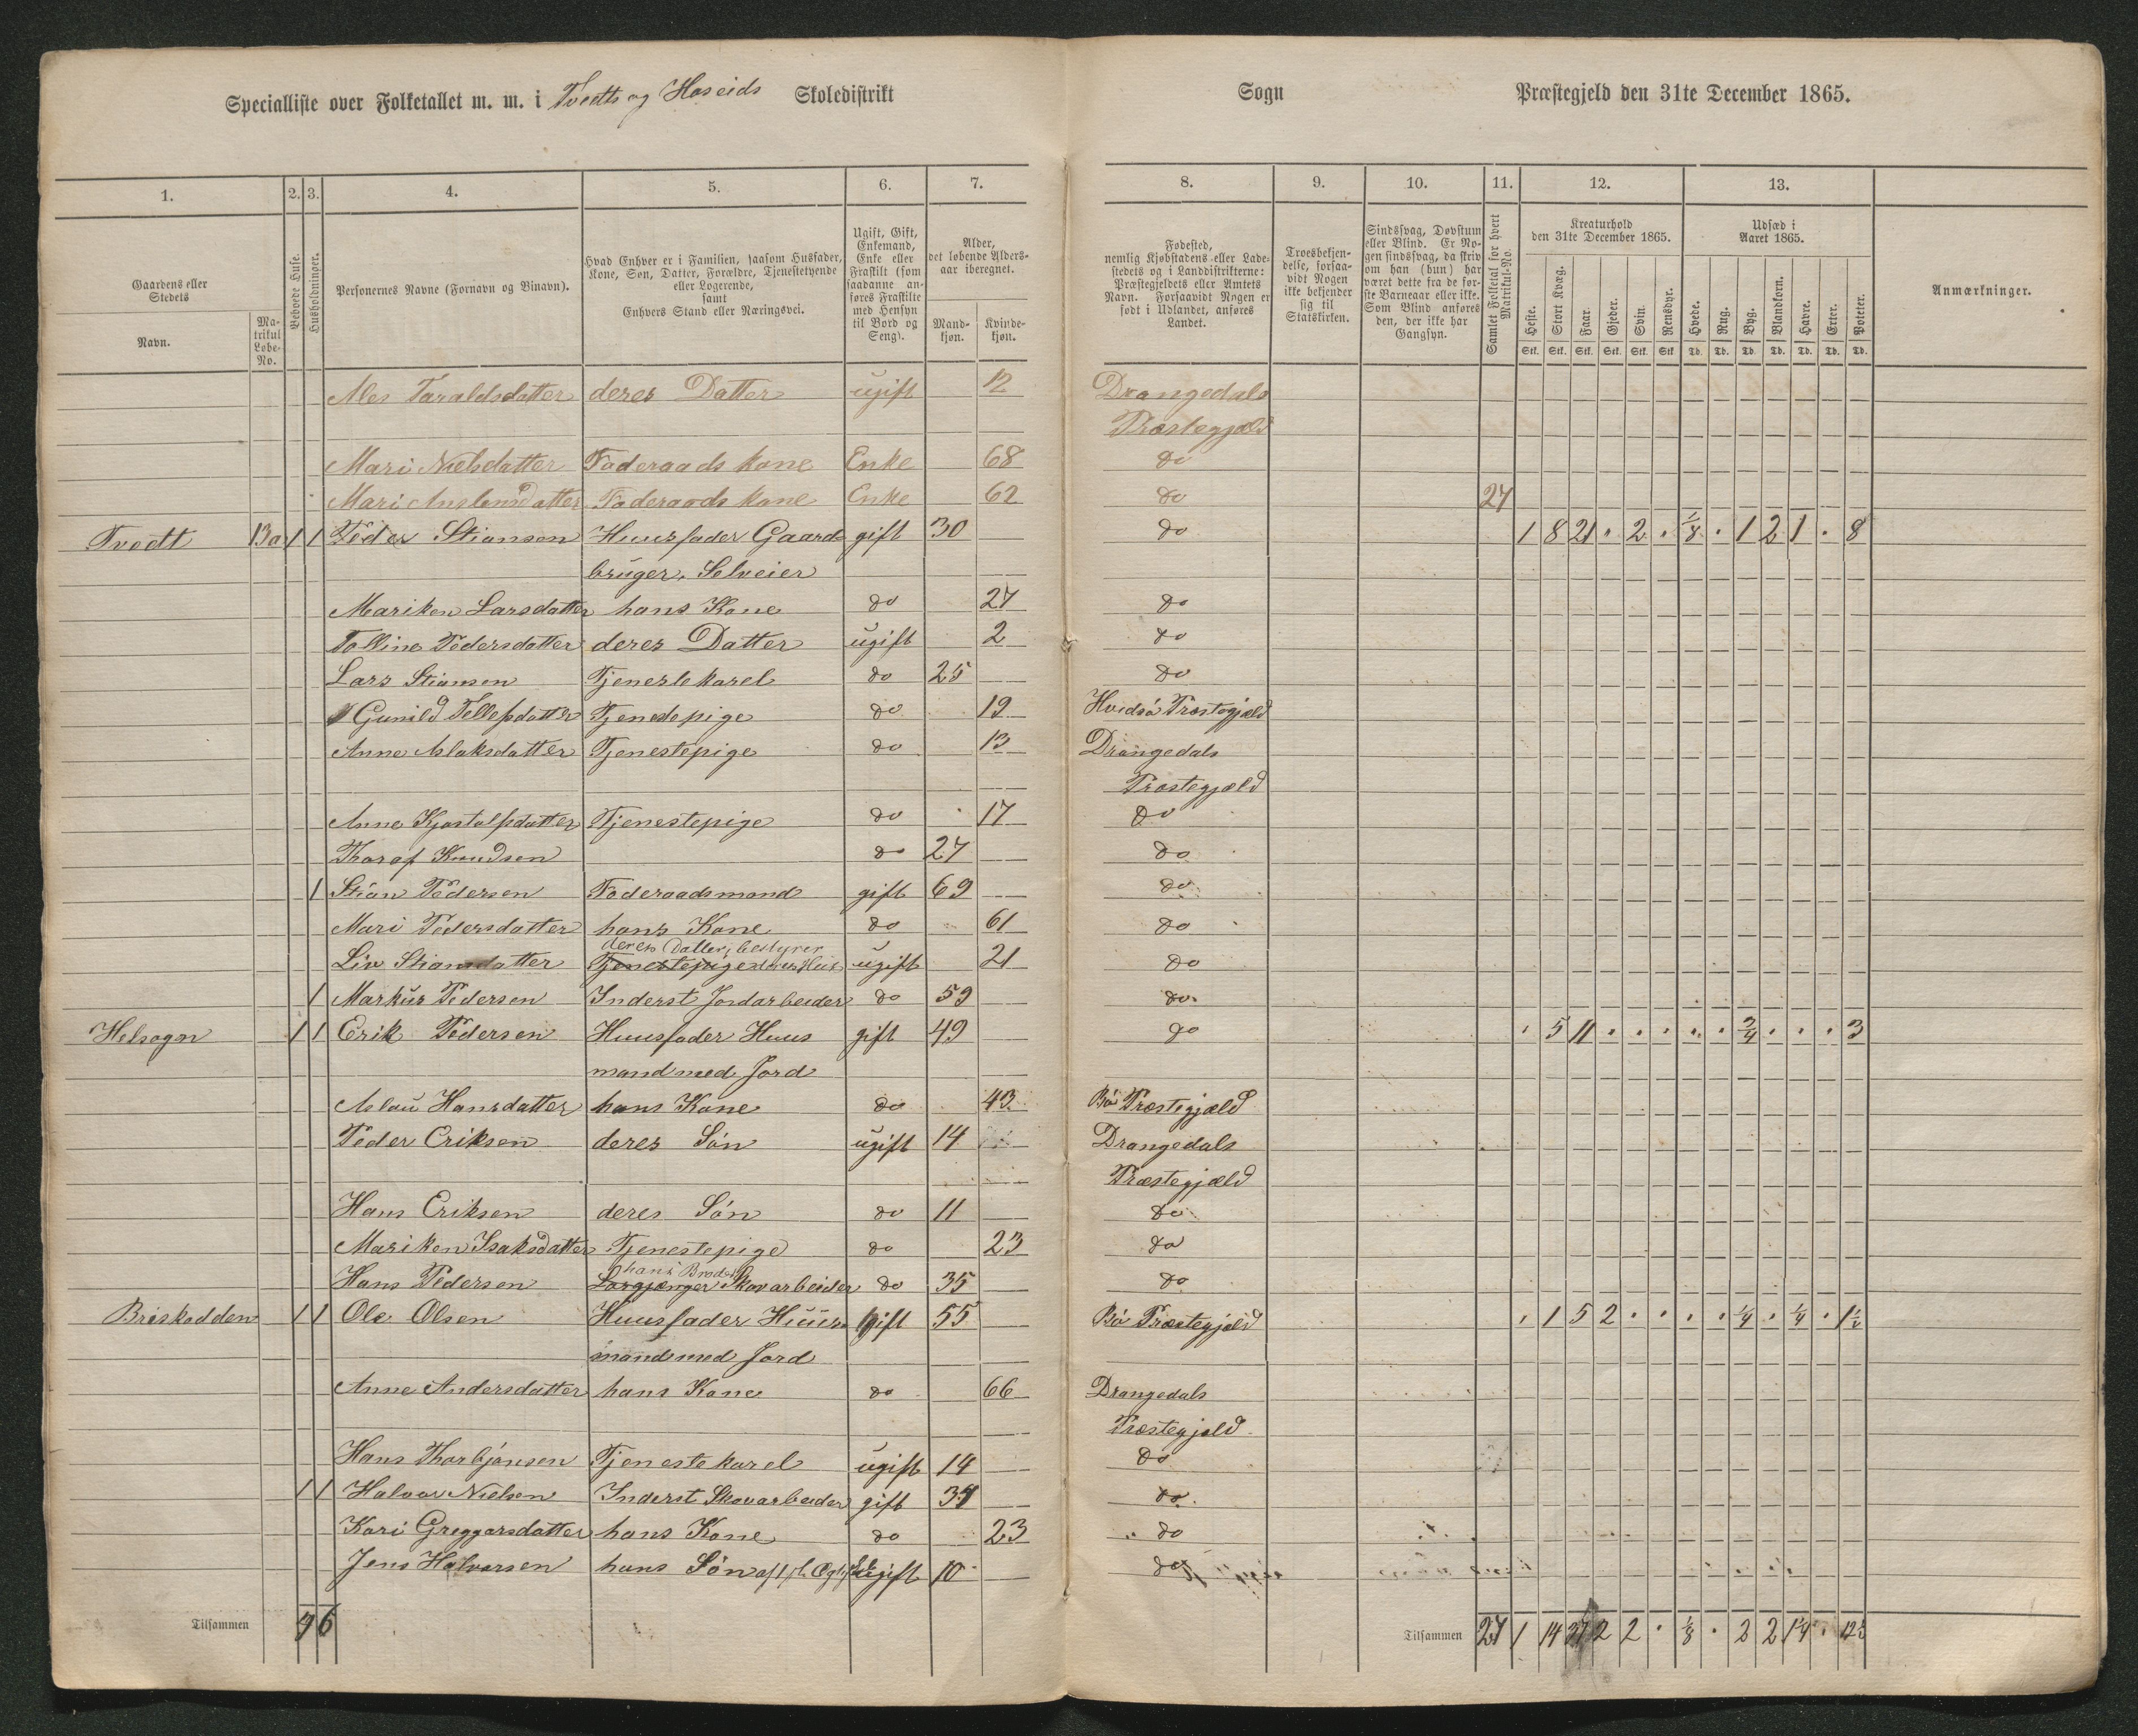 Specialliste over Folketallet m. m. i Tvedts og Høseids Skoledistrikt Sogn Præstegjeld den 31te December 1865.
1. 2. 3. 4. 5. 6. 7. 8. 9. 10. 11. 12. 13.
Gaardens eller Stedets
Navn.
Matrikul Løbe-No.
Bebvede Huse.
Husholdninger.
Personernes Navne (Fornavn og Binavn).
Hvad Enhver er i Familien, saasom Husfader, Kone, Søn, Datter, Forældre, Tjenestetyende eller Logerende, samt Enhvers Stand eller Næringsvei.
Ugift, Gift, Enkemand, Enke eller Fraskilt (som saadanne anføres Fraskilte med Hensyn til Bord og Seng).
Alder, det løbende Alders-aar iberegnet.
Mand-kjøn. Kvinde-kjøn.
Fødested, nemlig Kjøbstadens eller Ladestedets og i Landdistrikterne: Præstegjeldets eller Amtets Navn. Forsaavidt Nogen er født i Udlandet, anføres Landet.
Troesbekjendelse, forsaavidt Nogen ikke bekjender sig til Statskirken.
Sindssvag, Døvstum eller Blind. Er Nogen sindssvag, da skriv om han (hun) har været dette fra de første Barneaar eller ikke. Som Blind anføres den, der ikke har Gangsyn.
Samlet Folketal for hvert Matrikul-No.
Kreaturhold den 31te December 1865.
Heste. Stort Kvæg. Faar. Gjeder. Svin. Rensdyr.
Stk. Stk. Stk. Stk. Stk. Stk.
Udsæd i Aaret 1865.
Hvede. Rug. Byg. Blandkorn. Havre. Erter. Poteter.
Td. Td. Td. Td. Td. Td. Td.
Anmærkninger.
Ales Taraldsdatter deres Datter ugift 12 Drangedals
Præstegjæld
Mari Nielsdatter Føderaads kone Enke 68 do
Mari Anslensdatter Føderaads kone Enke 62 do 27
Tvedt 13a 1 1 Peder Stiansen Huusfader Gaard gift 30 do 1 8 21 . 2 . 1/8 . 1 2 1 . 8
bruger, Selveier
Mariken Larsdatter hans Kone do 27 do
Tolline Pedersdatter deres Datter ugift 2 do
Lars Stiansen Tjenestekarel do 25 do
Gunild Tellefsdatter Tjenestepige do 19 Hvidsö Præstegjæld
Anne Aslaksdatter Tjenestepige do 13 Drangedals
Præstegjæld
Anne Kjøstolfsdatter Tjenestepige do 17 do
Thorof Knudsen do 27 do
1 Stian Pedersen Føderaadsmand gift 69 do
Mari Pedersdatter hans Kone do 61 do
deres Datter, bestyrer
Liv Stiansdatter Tjenestepige deres Huus ugift 21 do
1 Markus Pedersen Inderst Jordarbeider do 59 do
Helsogn 1 1 Erik Pedersen Huusfader Huus gift 49 do . 5 11 . . . . . 3/4 . . . 3
mand med Jord
Aslau Hansdatter hans Kone do 43 Bö Præstegjæld
Peder Eriksen deres Sön ugift 14 Drangedals
Præstegjæld
Hans Eriksen deres Sön do 11 do
Mariken Isaksdatter Tjenestepige do 23 do
hans Broder
Hans Pedersen Løsgjænger Skovarbeider do 35 do
Briskodden 1 1 Ole Olsen Huusfader Huus gift 55 Bö Præstegjæld . 1 5 2 . . . . 1/4 . 1/4 . 1 1/2
mand med Jord
Anne Andersdatter hans Kone do 66 Drangedals
Præstegjæld
Hans Thorbjönsen Tjenestekarel ugift 14 do
1 1 Halvor Nielsen Inderst Skovarbeider gift 37 do
Kari Greggarsdatter hans Kone do 23 do
Jens Halvorsen hans Sön af 1ste Ægt. ugift 10 do
Tilsammen 6 Tilsammen 27 1 14 37 2 2 . 1/8 . 2 2 1 1/4 . 12 1/2